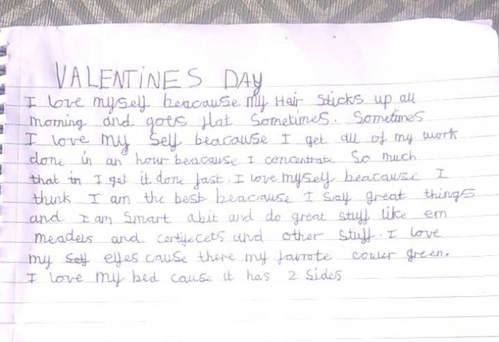 VALENTINES DAY
I love myself beacause my Hair sticks up all
morning and gots flat Sometimes. Sometimes
I love my Self beacause I get all of my work
done in an hour beacause I concentrate So much
that in I get it done fast. I love myself beacause I
think I am the best beacause I say great things
and I am Smart abit and do great stuff like em
meadels and certyecets and other stuff. I love
my self eyes cause there my favrote couler green.
I love my bed cause it has 2 sides